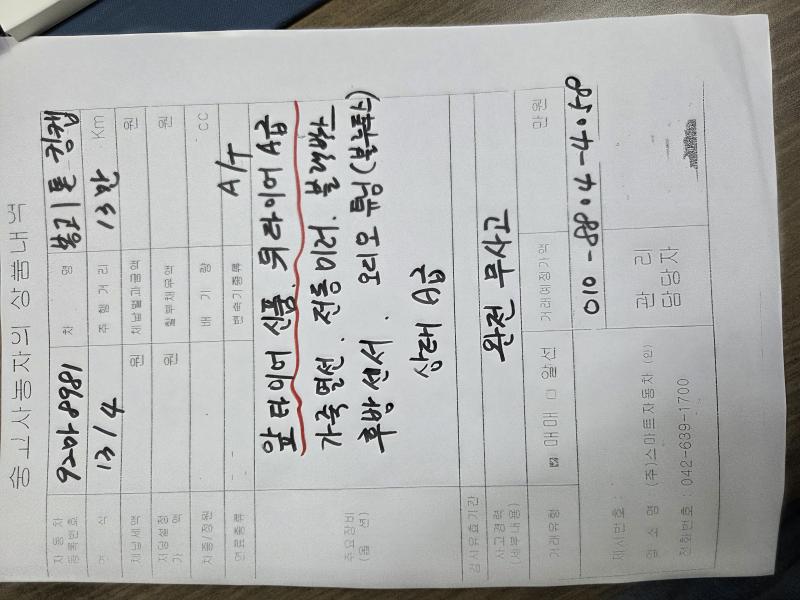 중고자동차의 상품내역
자동차등록번호 92마8981 차 명 봉고1톤 킹캡
연 식 13/4 주행거리 13만 Km
체납세액 원 체납벌과금액 원
저당설정가액 원 할부채무액 원
차종/정원 배기량 CC
연료종류 변속기종류 A/T
주요장비(옵션)
앞타이어 신품. 뒤타이어 A급
가죽 열선. 전동미러. 블랙박스
후방센서. 오디오 튜닝(블루투스)
상태 A급
검사유효기간
사고경력(세부내용) 완전 무사고
거래유형 ☑ 매매 □ 알선 거래예정가액 만원
010-8804-4058
제시번호 :
업 소 명 : (주)스마트자동차 (인)
전화번호 : 042-639-1700
관 리
담당자